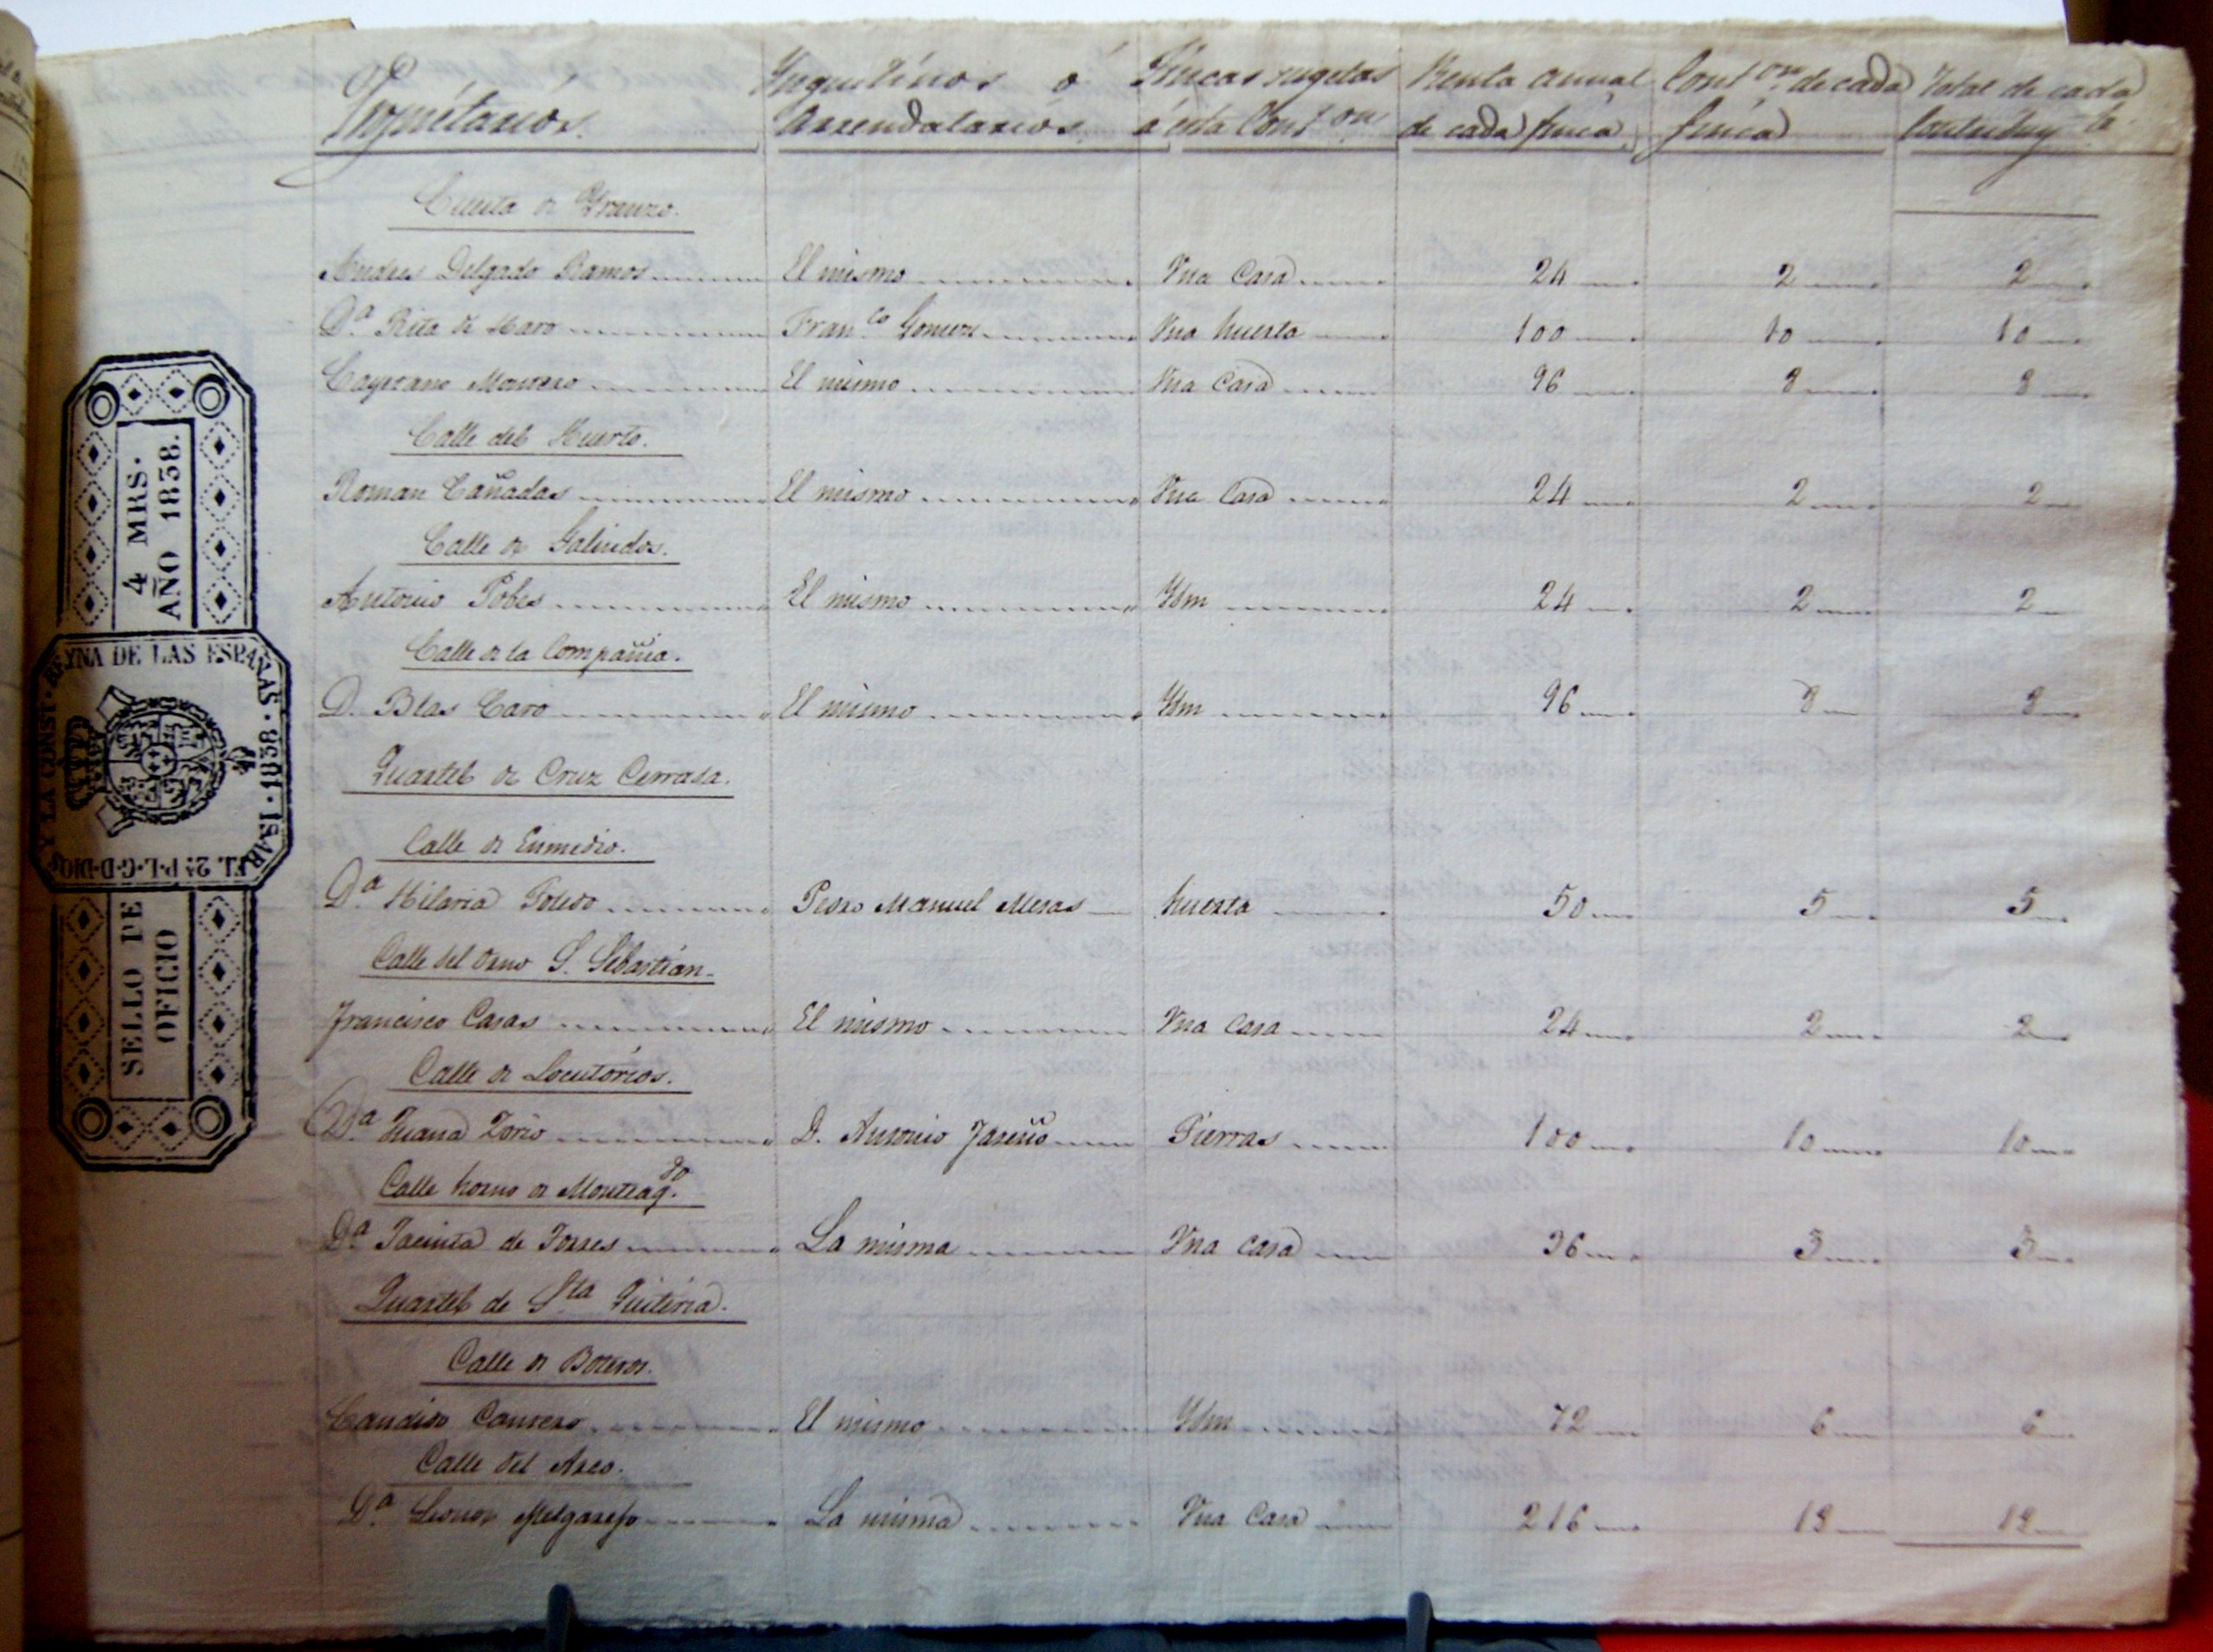 Propiétarios. Ynquilínos ó Arrendatarios. Fincas sugetas á ésta Cont.on Renta anual de cada finca Cont.on de cada finca Total de cada Contribuy.te
Cuesta de
Andres Delgado Ramos El mismo Una Casa 24 2 2
D.a Rita de Haro Fran.co Gomez Una huerta 100 10 10
Cayetano Montero El mismo Una Casa 96 8 8
Calle del Huerto.
Roman Cañadas El mismo Una Casa 24 2 2
Calle de Galindos.
Antonio Pobes El mismo Ydm 24 2 2
Calle de la Compañia.
D. Blas Caro El mismo Ydm 96 8 8
Quartel de Cruz Cerrada.
Calle de Enmedio.
D.a Hilaria Toledo Pedro Manuel Mesas huerta 50 5 5
Calle del Orno S. Sebastian.
Francisco Casas El mismo Una Casa 24 2 2
Calle de Locutórios.
D.a Juana Zorio D. Antonio Jareño Tierras 100 10 10
Calle horno de
D.a Jacinta de Torres La misma Una casa 36 3 3
Quartel de S.ta Quitéria.
Calle de Boteros.
Candido Cantero El mismo Ydm 72 6 6
Calle del Arco.
D.a Leonor Melgarejo La misma Una Casa 216 18 18
4 MRS.
AÑO 1838.
ISABEL 2ª P.L.G.D.DIOS Y LA CONST. REYNA DE LAS ESPAÑAS. 1838.
SELLO DE
OFICIO